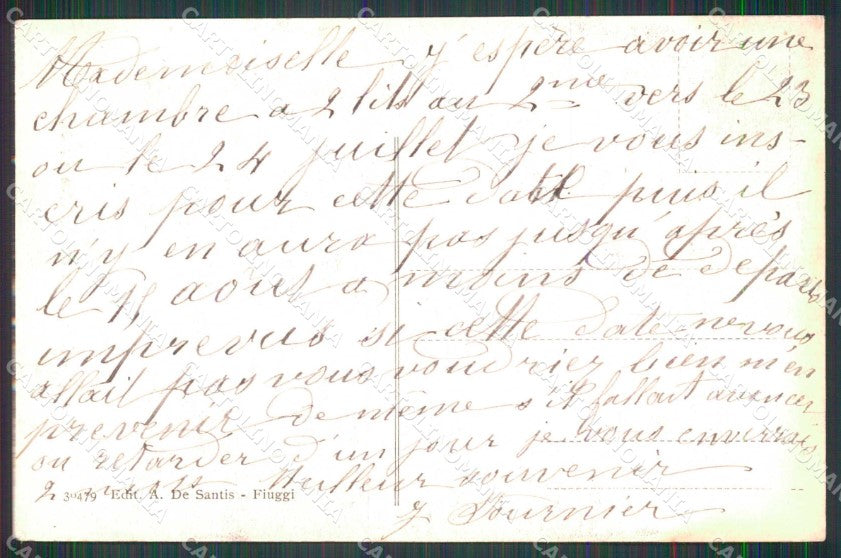 Mademoiselle j'espere avoir une
chambre a 2 lits au 2me vers le 23
ou le 24 juillet je vous ins-
cris pour cette date puis il
n'y en aura pas jusqu'après
le 15 aout a moins de departs
imprevus si cette date ne vous
allait pas vous voudriez bien m'en
prevenir de meme s'il fallait avancer
ou retarder d'un jour je vous enverrais
2 mots Meilleur souvenir
J Fournier
30479 Edit. A. De Santis - Fiuggi
CARTOLINOMANIA